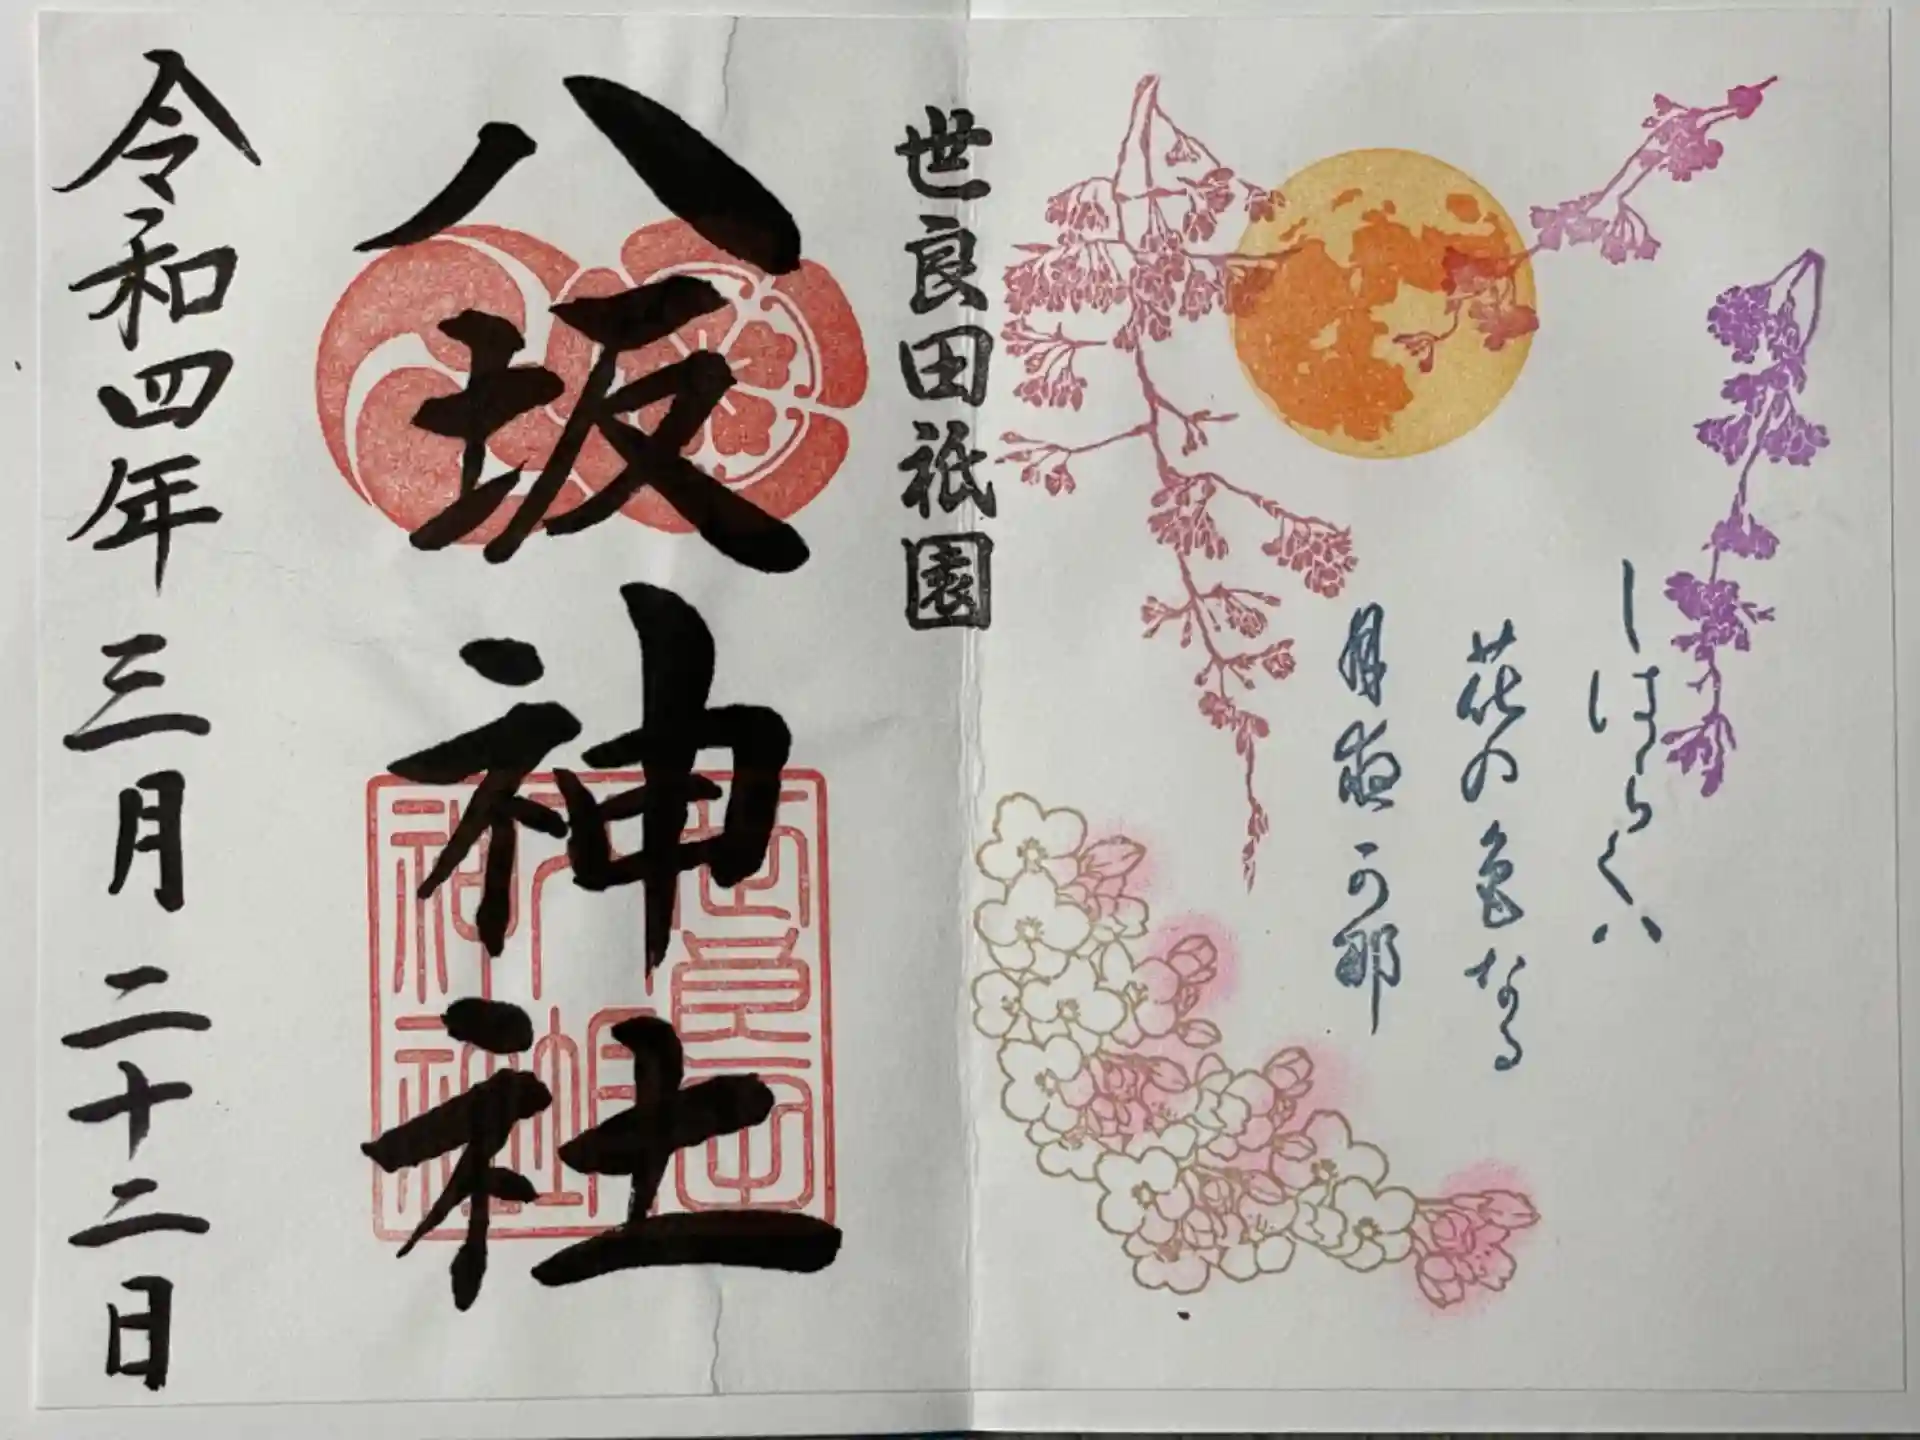 しはらくハ
花の色なる
月夜可那
世良田祇園
八坂神社
世良田
八坂神社
令和四年三月二十二日